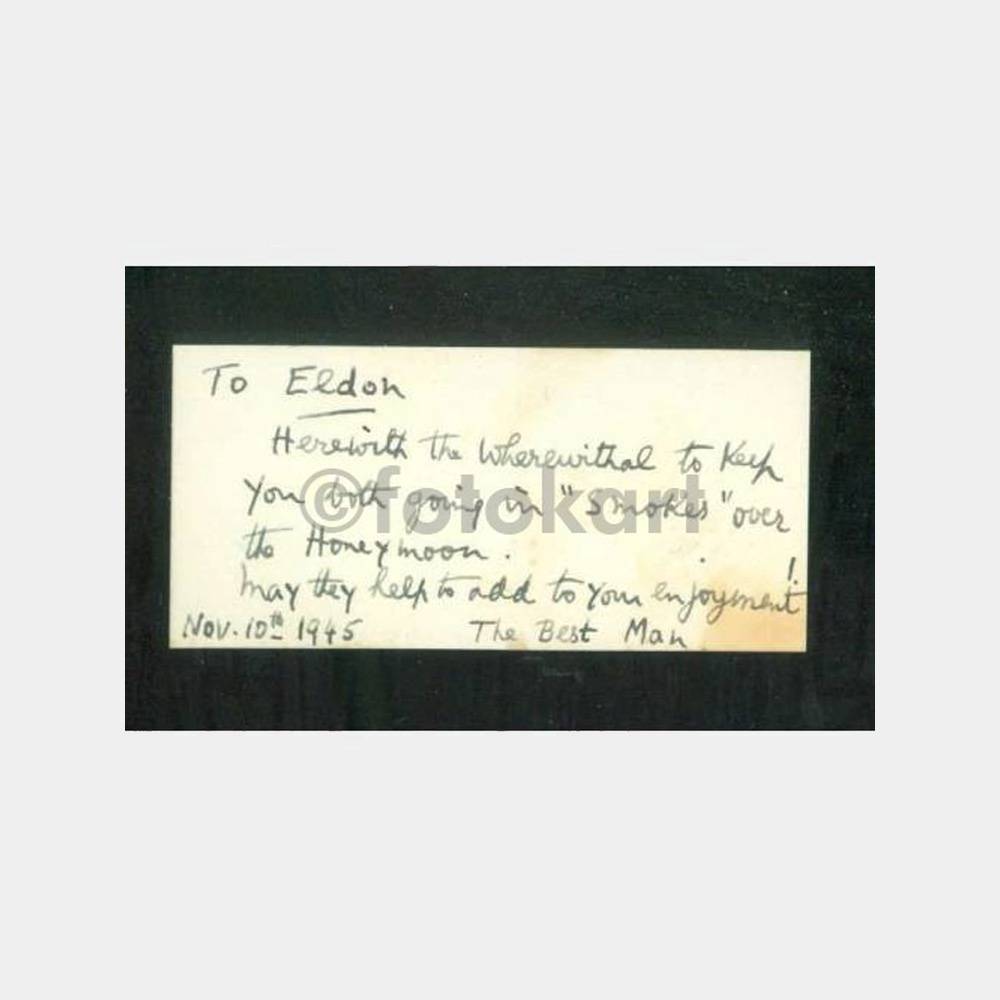 To Eldon
Herewith the Wherewithal to Keep
You both going in "Smokes" over
the Honeymoon.
May they help to add to your enjoyment!
Nov. 10th 1945 The Best Man
©fotokart